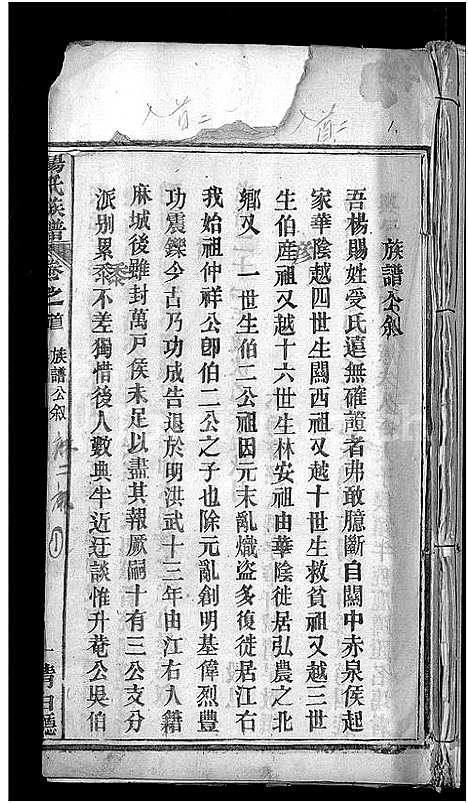 族譜公叙
吾楊賜姓受氏遠無確證者弗敢臆斷自關中赤泉侯起
家華陰越四世生關西祖又越十世生救貧祖又越三世
生伯産祖又越十六世生林安祖由華陰徙居弘農之北
彦
鄉又一世生伯二公祖因元末亂熾盜多復徙居江右
我始祖仲祥公卽伯二公之子也除元亂創明基偉烈豐
功震鑠今古乃功成告退於明洪武十三年由江右入籍
麻城後雖封萬戶侯未足以盡其報厥嗣十有三公支分
派别累黍不差獨惜後人數典半近迂談惟升菴公吳伯
黍
楊氏族譜 卷之首 族譜公叙
一 清白德
首二
首二
1